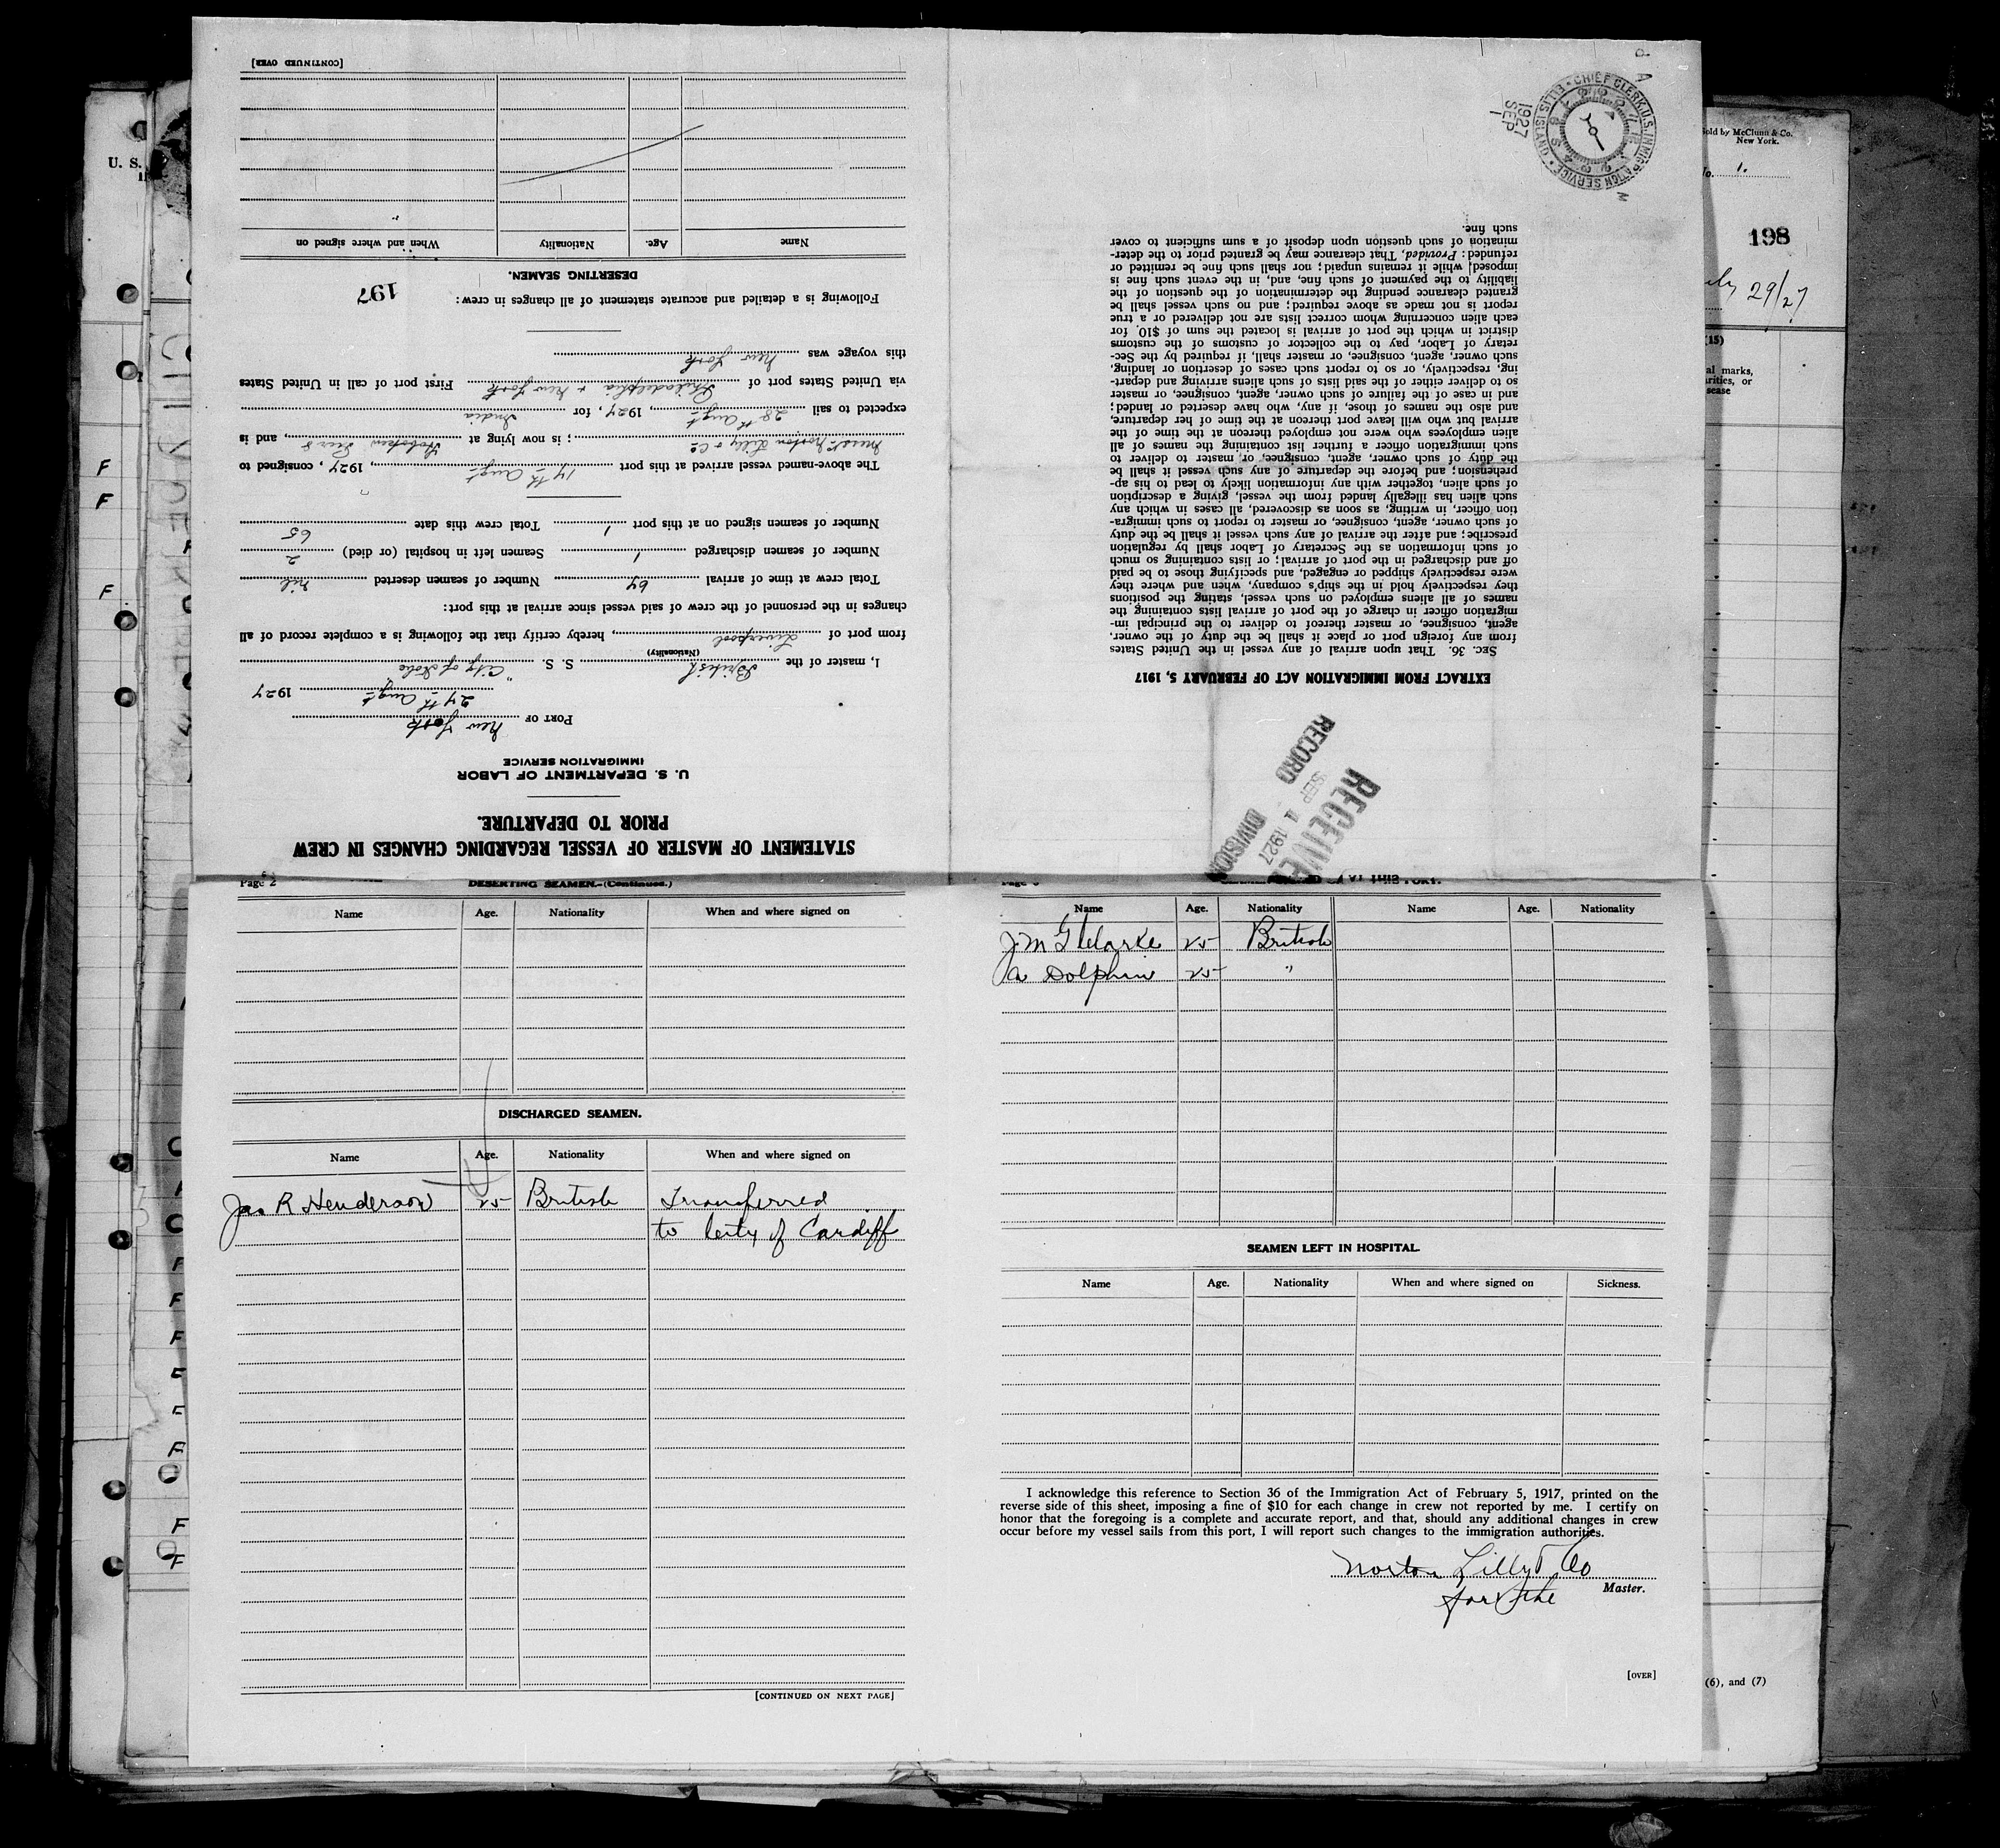 STATEMENT OF MASTER OF VESSEL REGARDING CHANGES IN CREW
PRIOR TO DEPARTURE.
U. S. DEPARTMENT OF LABOR
IMMIGRATION SERVICE
PORT OF New York
27th Augt 1927
I, master of the British S. S. "City of
(Nationality)
from port of Liverpool, hereby certify that the following is a complete record of all
changes in the personnel of the crew of said vessel since arrival at this port:
Total crew at time of arrival 67 Number of seamen deserted nil
Number of seamen discharged 1 Seamen left in hospital (or died) 2
Number of seamen signed on at this port 1 Total crew this date 65
The above-named vessel arrived at this port 17th Augt, 1927, consigned to
Messrs Norton Lilly & Co; is now lying at Hoboken Pier, and is
expected to sail 28th Augt, 1927, for India
via United States port of Philadelphia & New York First port of call in United States
this voyage was New York
Following is a detailed and accurate statement of all changes in crew:
197
DESERTING SEAMEN.
Name Age. Nationality When and where signed on
[CONTINUED OVER]
CHIEF CLERK, U.S. IMMIGRATION SERVICE • ELLIS ISLAND •
1927
SEP
1
RECEIVED
SEP 4 1927
RECORD DIVISION
EXTRACT FROM IMMIGRATION ACT OF FEBRUARY 5, 1917
SEC. 36. That upon arrival of any vessel in the United States
from any foreign port or place it shall be the duty of the owner,
agent, consignee, or master thereof to deliver to the principal im-
migration officer in charge of the port of arrival lists containing the
names of all aliens employed on such vessel, stating the positions
they respectively hold in the ship's company, when and where they
were respectively shipped or engaged, and specifying those to be paid
off and discharged in the port of arrival; or lists containing so much
of such information as the Secretary of Labor shall by regulation
prescribe; and after the arrival of any such vessel it shall be the duty
of such owner, agent, consignee, or master to report to such immigra-
tion officer, in writing, as soon as discovered, all cases in which any
such alien has illegally landed from the vessel, giving a description
of such alien, together with any information likely to lead to his ap-
prehension; and before the departure of any such vessel it shall be
the duty of such owner, agent, consignee, or master to deliver to
such immigration officer a further list containing the names of all
alien employees who were not employed thereon at the time of the
arrival but who will leave port thereon at the time of her departure,
and also the names of those, if any, who have deserted or landed;
and in case of the failure of such owner, agent, consignee, or master
so to deliver either of the said lists of such aliens arriving and depart-
ing, respectively, or so to report such cases of desertion or landing,
such owner, agent, consignee, or master shall, if required by the Sec-
retary of Labor, pay to the collector of customs of the customs
district in which the port of arrival is located the sum of $10. for
each alien concerning whom correct lists are not delivered or a true
report is not made as above required; and no such vessel shall be
granted clearance pending the determination of the question of the
liability to the payment of such fine, and, in the event such fine is
imposed, while it remains unpaid; nor shall such fine be remitted or
refunded: Provided, That clearance may be granted prior to the deter-
mination of such question upon deposit of a sum sufficient to cover
such fine.
Page 2 DESERTING SEAMEN.—(Continued.)
Name Age. Nationality When and where signed on
DISCHARGED SEAMEN.
Name Age. Nationality When and where signed on
Jas R Henderson 25 British Transferred
to City of Cardiff
[CONTINUED ON NEXT PAGE]
Name Age. Nationality Name Age. Nationality
J.M G Clarke 25 British
A Dolphin 25 "
SEAMEN LEFT IN HOSPITAL.
Name Age. Nationality When and where signed on Sickness.
I acknowledge this reference to Section 36 of the Immigration Act of February 5, 1917, printed on the
reverse side of this sheet, imposing a fine of $10 for each change in crew not reported by me. I certify on
honor that the foregoing is a complete and accurate report, and that, should any additional changes in crew
occur before my vessel sails from this port, I will report such changes to the immigration authorities.
Norton Lilly & Co
for the Master.
[OVER]
U. S.
Sold by McClunn & Co.
New York.
No. 1.
198
29/27
(15)
marks,
or
(6), and (7)
F
F
F
F
F
F
F
F
F
F